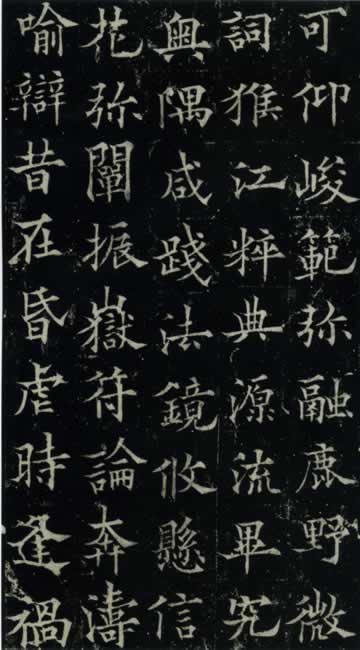 可仰峻範弥融鹿野微
詞猴江粹典源流畢究
奥隅咸踐法鏡攸懸信
花弥闡振嶽符論奔濤
喻辯昔在昏虐時逢禍